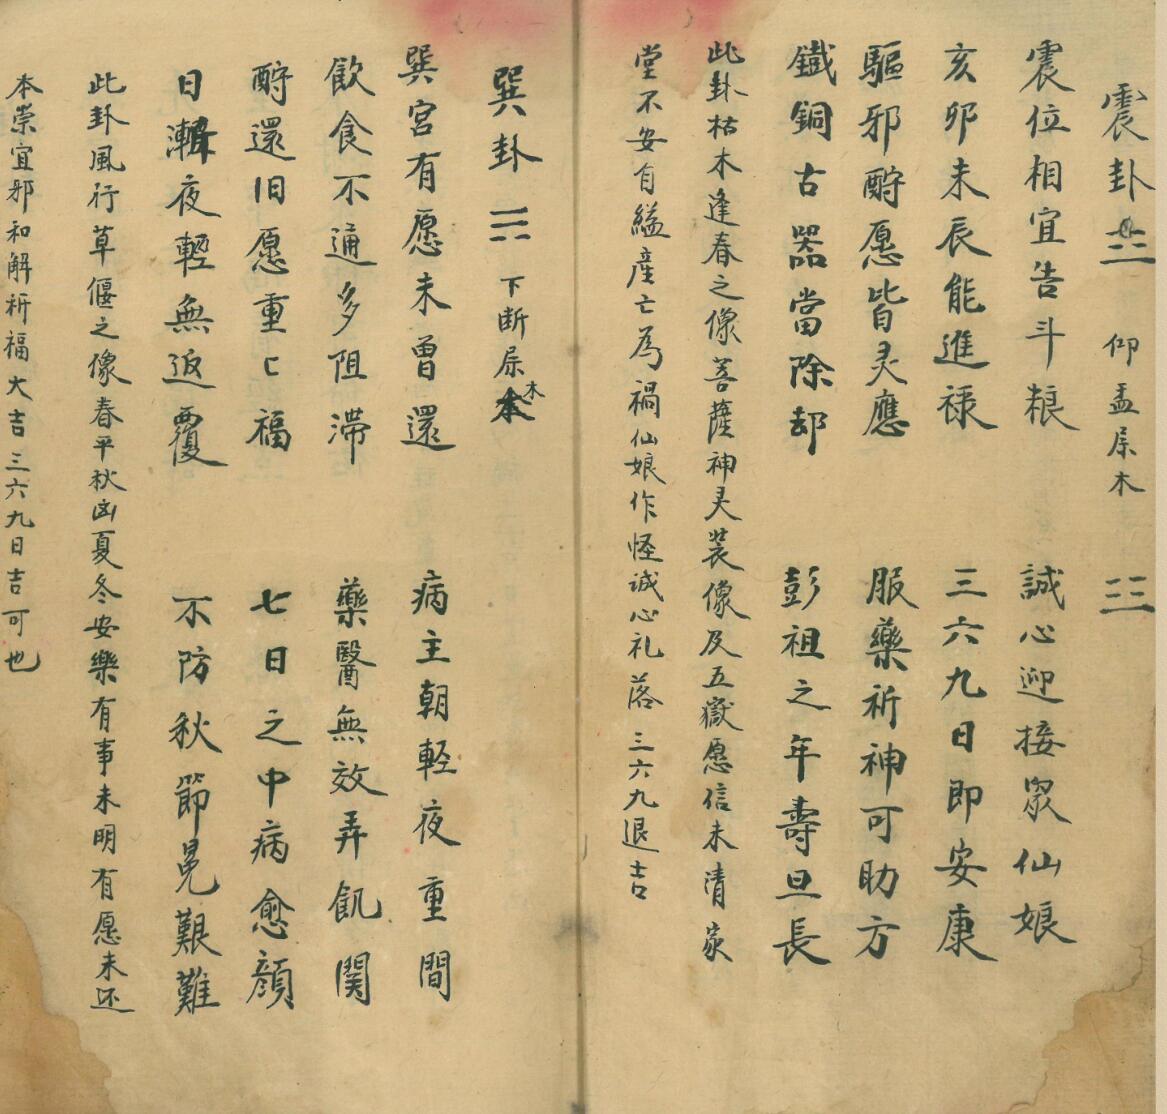 震卦☳ 仰盂屎木 ☳
震位相宜告斗粮 誠心迎接眾仙娘
亥卯未辰能進禄 三六九日即安康
驅邪酧愿皆灵應 服藥祈神可助方
鐵銅古器當除却 彭祖之年壽旦長
此卦枯木逢春之像菩薩神灵装像及五嶽愿信未清家
堂不安自縊産亡為禍仙娘作怪誠心礼落三六九退吉
巽卦☴ 下断屎木
巽宮有愿未曾還 病主朝輕夜重間
飲食不通多阻滞 藥醫無效弄飢関
酧還旧愿重〻福 七日之中病愈顔
日漸夜輕無返覆 不防秋節晃艱難
此卦風行草偃之像春平秋凶夏冬安樂有事未明有愿未还
本祟宜邪和解祈福大吉三六九日吉可也